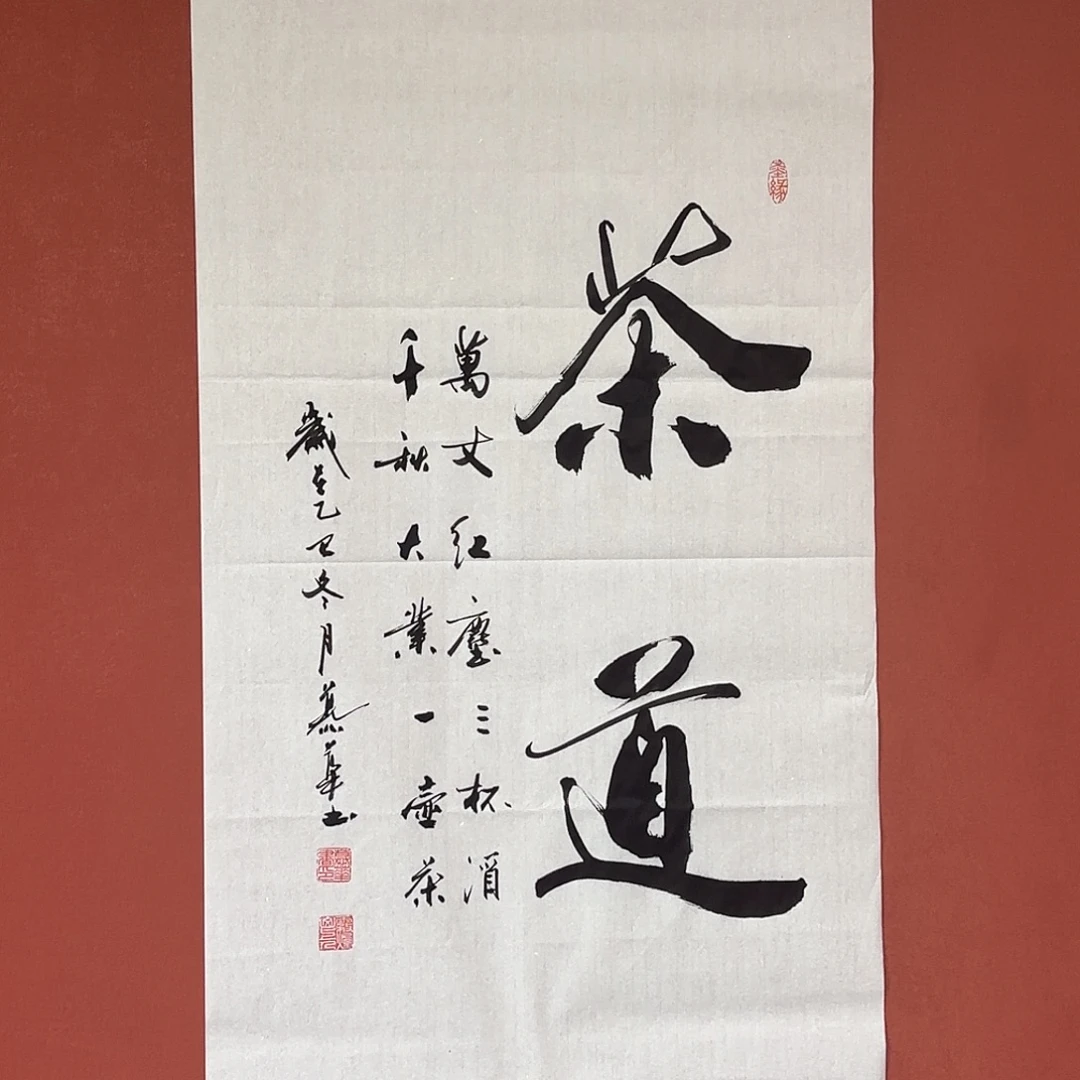 茶道
萬丈红塵三杯酒
千秋大業一壺茶
歲 乙 冬月慕華书